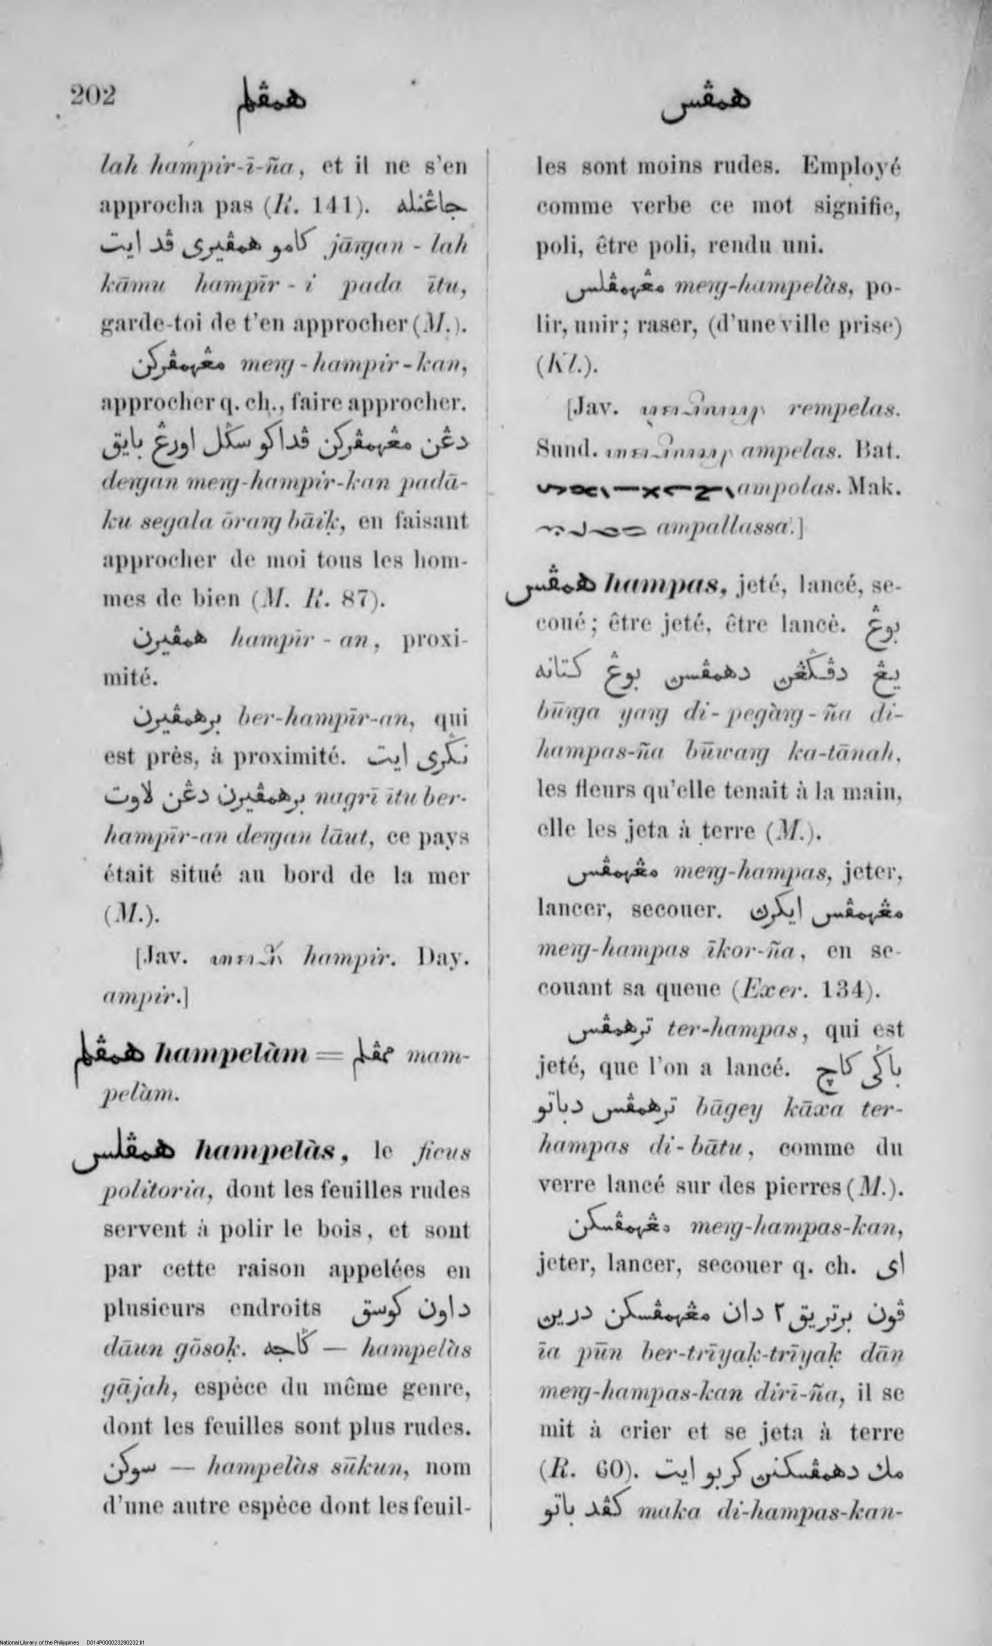 202
همڤلم
همڤس
lah hampir-ī-ña, et il ne s'en
approcha pas (R. 141). جاڠنله
كامو همڤيري ڤد ايت jāṅgan - lah
kāmu hampīr - i pada ītu,
garde-toi de t'en approcher (M.).
مڠهمڤركن meṅg - hampir - kan,
approcher q. ch., faire approcher.
دڠن مڠهمڤركن ڤداكو سݢل اورڠ بايق
deṅgan meṅg-hampir-kan padā-
ku segala ōraṅg bāiḳ, en faisant
approcher de moi tous les hom-
mes de bien (M. R. 87).
همڤيرن hampīr - an, proxi-
mité.
برهمڤيرن ber-hampīr-an, qui
est près, à proximité. نݢري ايت
برهمڤيرن دڠن لاوت nagrī ītu ber-
hampīr-an deṅgan lāut, ce pays
était situé au bord de la mer
(M.).
[Jav. hampir. Day.
ampir.]
همڤلم hampelàm = ممڤلم mam-
pelàm.
همڤلس hampelàs, le ficus
politoria, dont les feuilles rudes
servent à polir le bois, et sont
par cette raison appelées en
plusieurs endroits داون ݢوسق
dāun gōsoḳ. ݢاجه — hampelàs
gājah, espèce du même genre,
dont les feuilles sont plus rudes.
سوكن — hampelàs sūkun, nom
d'une autre espèce dont les feuil-
les sont moins rudes. Employé
comme verbe ce mot signifie,
poli, être poli, rendu uni.
مڠهمڤلس meṅg-hampelàs, po-
lir, unir; raser, (d'une ville prise)
(Kl.).
[Jav. rempelas.
Sund. ampelas. Bat.
ampolas. Mak.
ampallassa.]
همڤس hampas, jeté, lancé, se-
coué; être jeté, être lancé. بوڠ
يڠ دڤݢڠن دهمڤسن بوڠ كتانه
būṅga yaṅg di-pegàṅg-ña di-
hampas-ña būwaṅg ka-tānah,
les fleurs qu'elle tenait à la main,
elle les jeta à terre (M.).
مڠهمڤس meṅg-hampas, jeter,
lancer, secouer. مڠهمڤس ايكرن
meṅg-hampas īkor-ña, en se-
couant sa queue (Exer. 134).
ترهمڤس ter-hampas, qui est
jeté, que l'on a lancé. باݢي كاچ
ترهمڤس دباتو bāgey kāxa ter-
hampas di-bātu, comme du
verre lancé sur des pierres (M.).
مڠهمڤسكن meṅg-hampas-kan,
jeter, lancer, secouer q. ch. اي
ڤون برتريق٢ دان مڠهمڤسكن درين
īa pūn ber-trīyaḳ-trīyaḳ dān
meṅg-hampas-kan dirī-ña, il se
mit à crier et se jeta à terre
(R. 60). مك دهمڤسكنن كربو ايت
كڤد باتو maka di-hampas-kan-
National Library of the Philippines